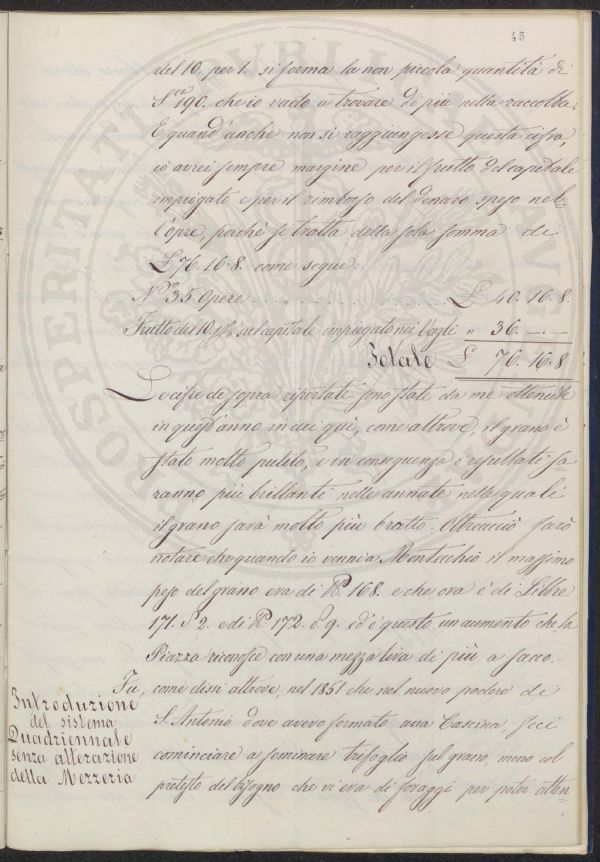 45
del 10. per 1. si forma la non piccola quantità di
S.ca 190. che io vado a trovare di più nella raccolta.
E quand'anche non si raggiungesse questa cifra,
io avrei sempre margine per il frutto del capitale
impiegato e per il rimborso del denaro speso nel-
l'opre, poichè si tratta della sola somma di
£ 76. 16. 8. come segue:
N.° 35. Opere . . . . . . . . . . £ 40. 16. 8.
Frutto del 10 p% sul capitale impiegato nei vagli " 36. — —
Totale £ 76. 16. 8
Le cifre di sopra riportate sono state da me ottenute
in quest'anno in cui quì, come altrove, il grano è
stato molto pulito, e in conseguenza i resultati sa
ranno più brillanti nelle annate nelle quali
il grano sarà molto più brutto. Oltreacciò farò
notare che quando io venni a Montecchio il massimo
peso del grano era di lb. 168. e che ora è di Libbre
171. 2. e di lb. 172. 9. ed è questo un aumento che la
Piazza riconosce con una mezza lira di più a sacco.
Introduzione
del sistema
Quadriennale
senza alterazione
della Mezzeria
Fu, come dissi altrove, nel 1851 che nel nuovo podere di
S. Antonio dove avevo formato una Cascina, feci
cominciare a seminare trifoglio sul grano, meno col
pretesto del bisogno che vi era di foraggi per poter atten-